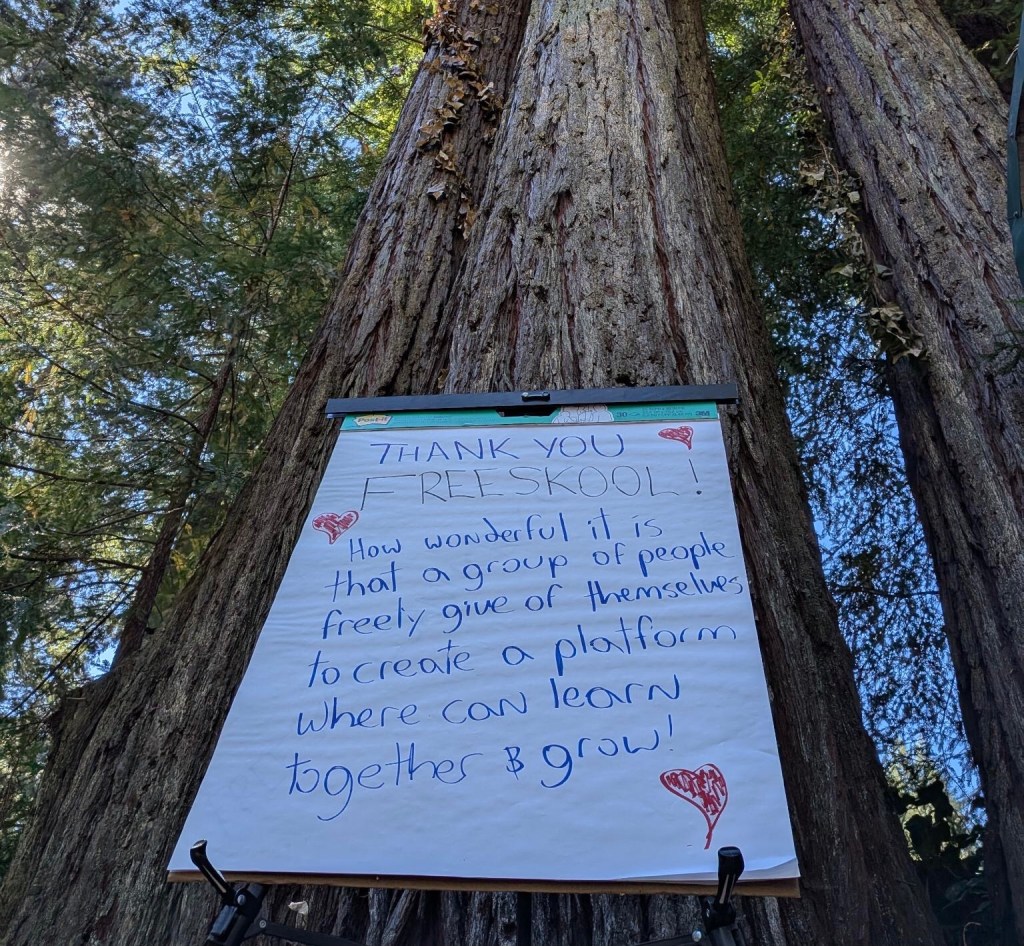 Post-it
30
3M
THANK YOU
FREESKOOL!
How wonderful it is
that a group of people
freely give of themselves
to create a platform
where can learn
together & grow!